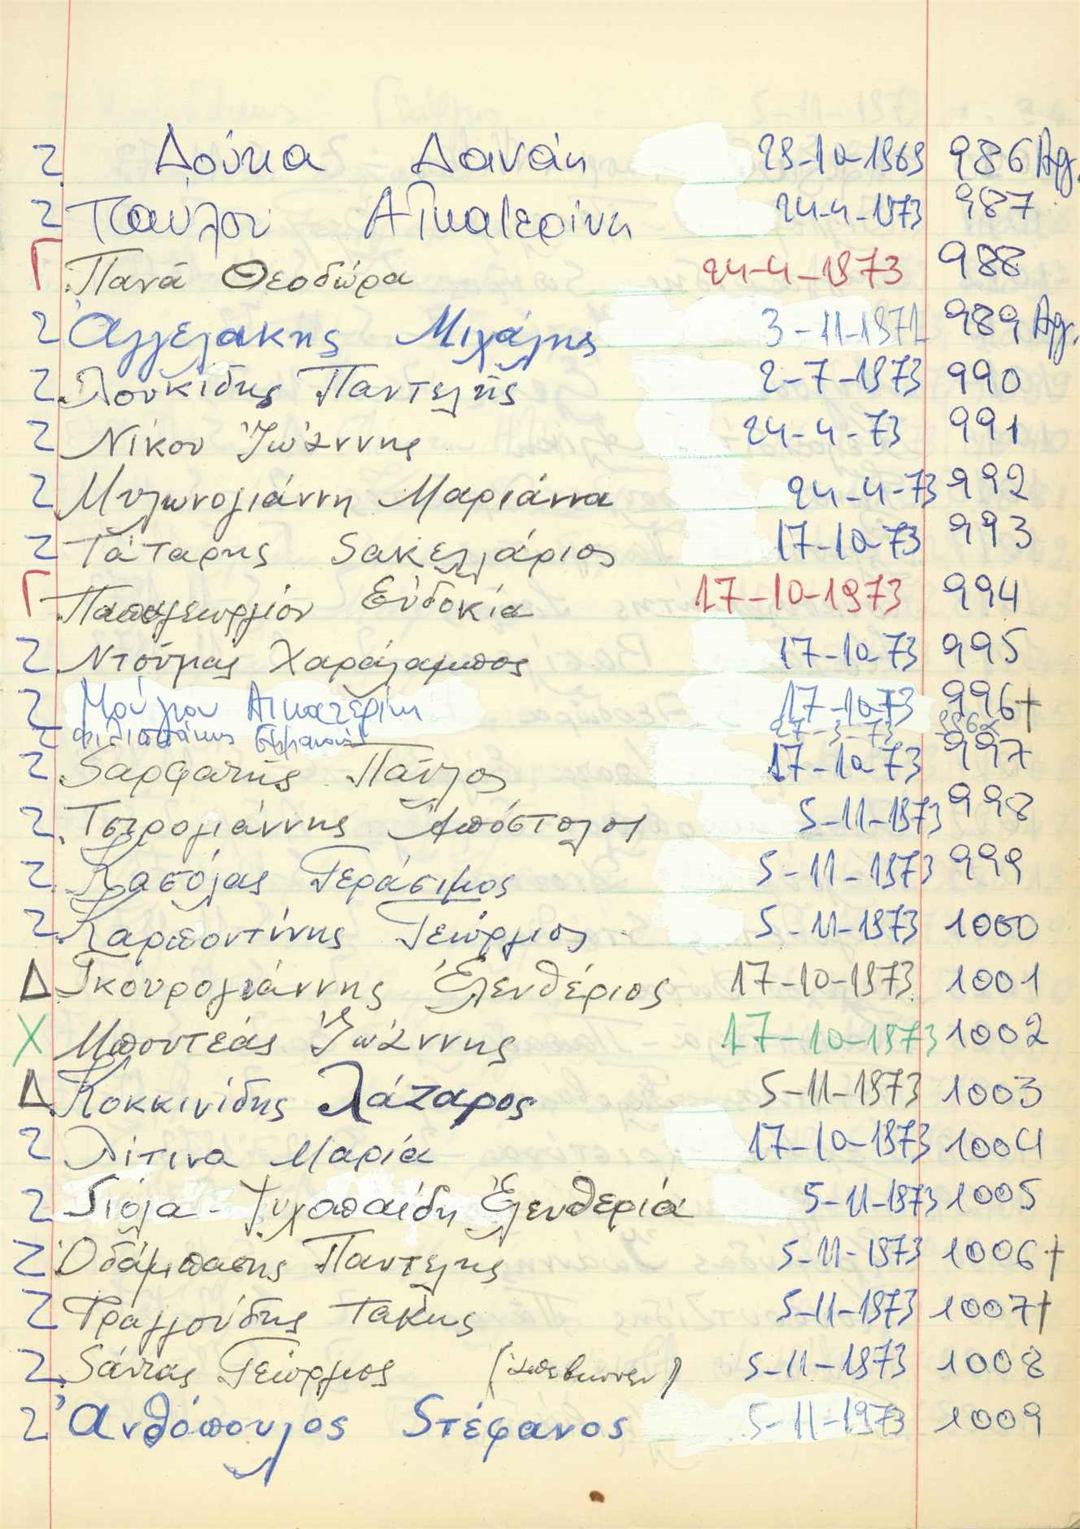 Ζ Δούκα Δανάη 23-10-1969 986 Αφ.
Ζ Παύλου Αἰκατερίνη 24-4-1973 987
Γ Πανᾶ Θεοδώρα 24-4-1973 988
Ζ Ἀγγελάκης Μιχάλης 3-11-1971 989 Αφ.
Ζ Λουκίδης Παντελῆς 2-7-1973 990
Ζ Νίκου Ἰωάννης 24-4-73 991
Ζ Μυλωνογιάννη Μαριάννα 24-4-73 992
Ζ Τάταρης Σακελλάριος 17-10-73 993
Γ Παπαγεωργίου Εὐδοκία 17-10-1973 994
Ζ Ντούμας Χαράλαμπος 17-10-73 995
Ζ Μούλιου Αἰκατερίνη 17-10-73 996†
Ζ 27-3-73
Ζ Σαρφατῆς Παῦλος 17-10-73 997
Ζ Τσιρογιάννης Ἀπόστολος 5-11-1973 998
Ζ Κασόλας Γεράσιμος 5-11-1973 999
Ζ Καρποντίνης Γεώργιος 5-11-1973 1000
Δ Γκουρογιάννης Ἐλευθέριος 17-10-1973 1001
Χ Μπουτέας Ἰωάννης 17-10-1973 1002
Δ Κοκκινίδης Λάζαρος 5-11-1973 1003
Ζ Λίτινα Μαρία 17-10-1973 1004
Ζ Γιόλα - Ψυχοπαίδη Ἐλευθερία 5-11-1973 1005
Ζ Ὀδάμπασης Παντελῆς 5-11-1973 1006†
Ζ Φραγγούδης Τάκης 5-11-1973 1007†
Ζ Σάντας Γεώργιος (ἀπεβίωσεν) 5-11-1973 1008
Ζ Ἀνθόπουλος Στέφανος 5-11-1973 1009